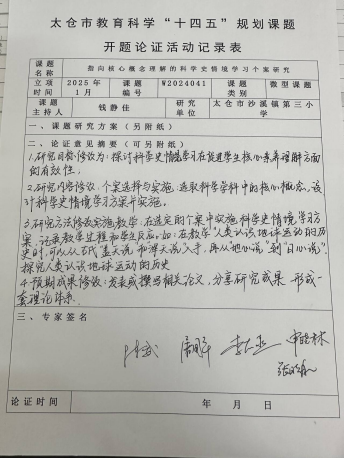 太仓市教育科学“十四五”规划课题
开题论证活动记录表
课题名称 指向核心概念理解的科学史情境学习个案研究
立项时间 2025年1月 课题编号 W2024041 课题类别 微型课题
课题主持人 钱静佳 研究单位 太仓市沙溪镇第三小学
一、课题研究方案（另附纸）
二、论证意见摘要（可另附纸）
1.研究目标修改为：探讨科学史情境学习在促进学生核心素养理解方面
的有效性。
2.研究内容修改：个案选择与实施，选取科学学科中的核心概念，设
计科学史情境学习方案并实施。
3.研究方法修改实施教学：在选定的个案中实施科学史情境学习方
案，记录教学过程和学生反应。如：在教学“人类认识地球运动的历
史”时，可以从古代“盖天说”和“浑天说”入手，再从“地心说”到“日心说”，
探究人类认识地球运动的历史
4.预期成果修改：发表或撰写相关论文，分享研究成果 形成一
套理论体系.
三、专家签名
论证时间 年 月 日